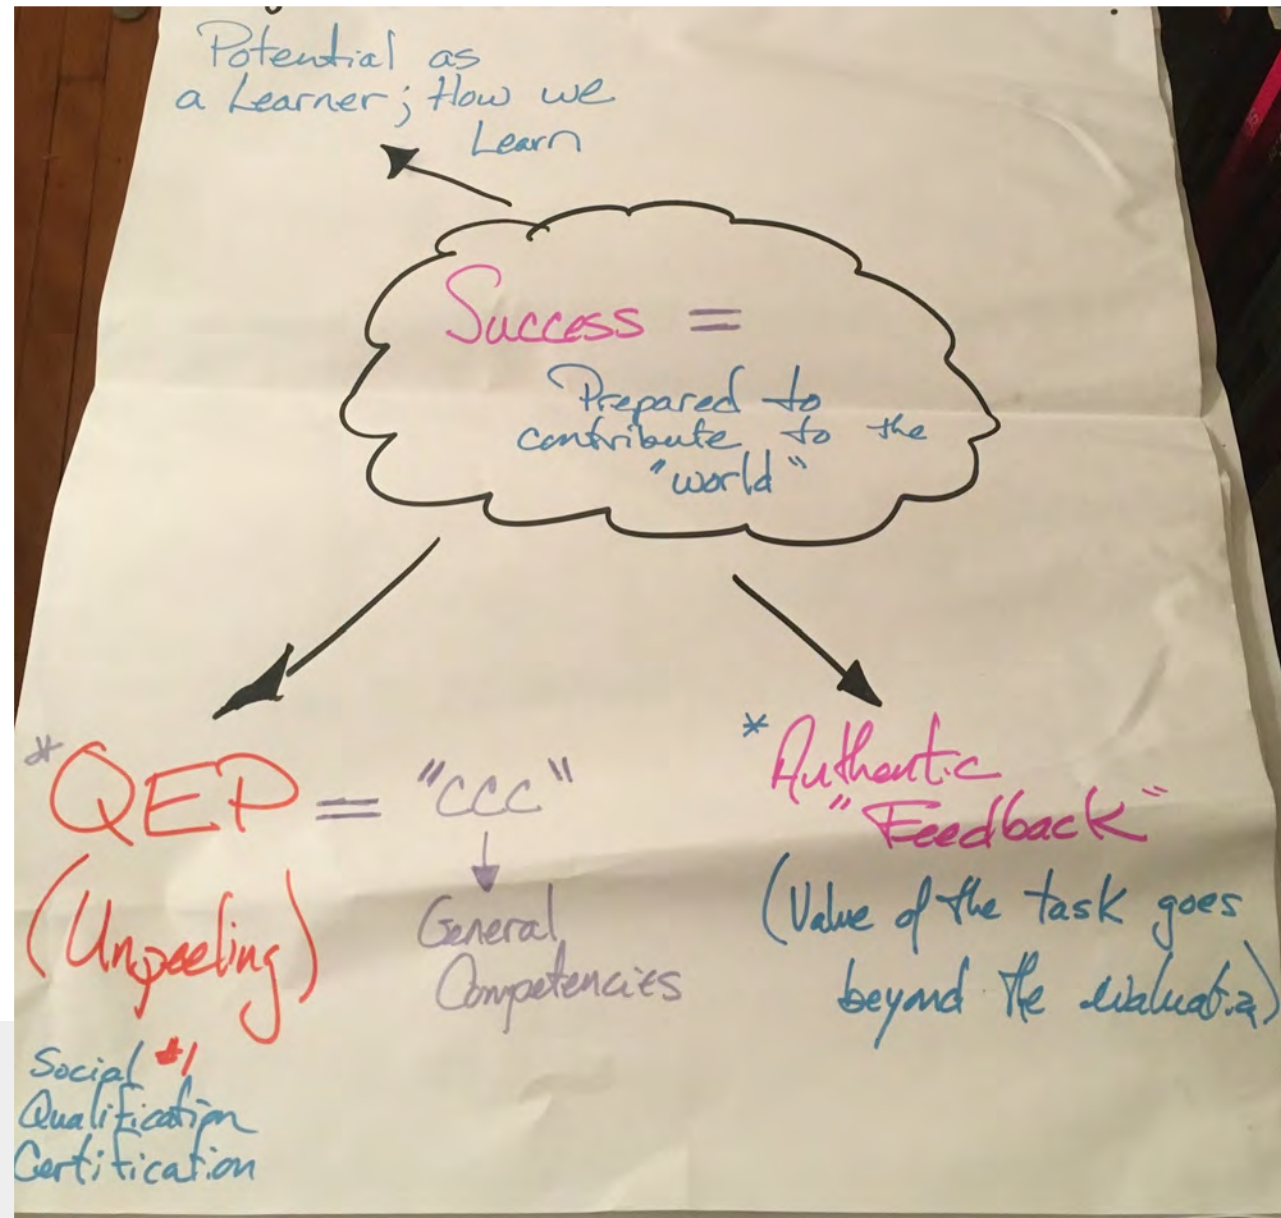 Potential as
a Learner; How we
Learn
Success =
Prepared to
contribute to the
"world"
*QEP = "CCC"
(Unpeeling)
General
Competencies
Social #1
Qualification
Certification
*Authentic
"Feedback"
(Value of the task goes
beyond the evaluation)